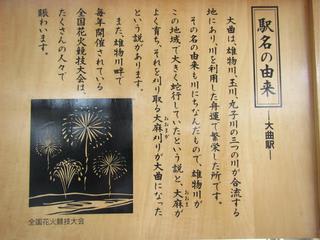 駅名の由来
―大曲駅―
大曲は、雄物川、玉川、丸子川の三つの川が合流する
地にあり、川を利用した舟運で繁栄した所です。
その名の由来も川にちなんだもので、雄物川が
この地域で大きく蛇行していたという説と、大麻が
おおま
よく育ち、それを刈り取る大麻刈りが大曲になった
おおまがり
という説があります。
また、雄物川畔で
毎年開催されている
全国花火競技大会は、
たくさんの人々で
賑わいます。
全国花火競技大会